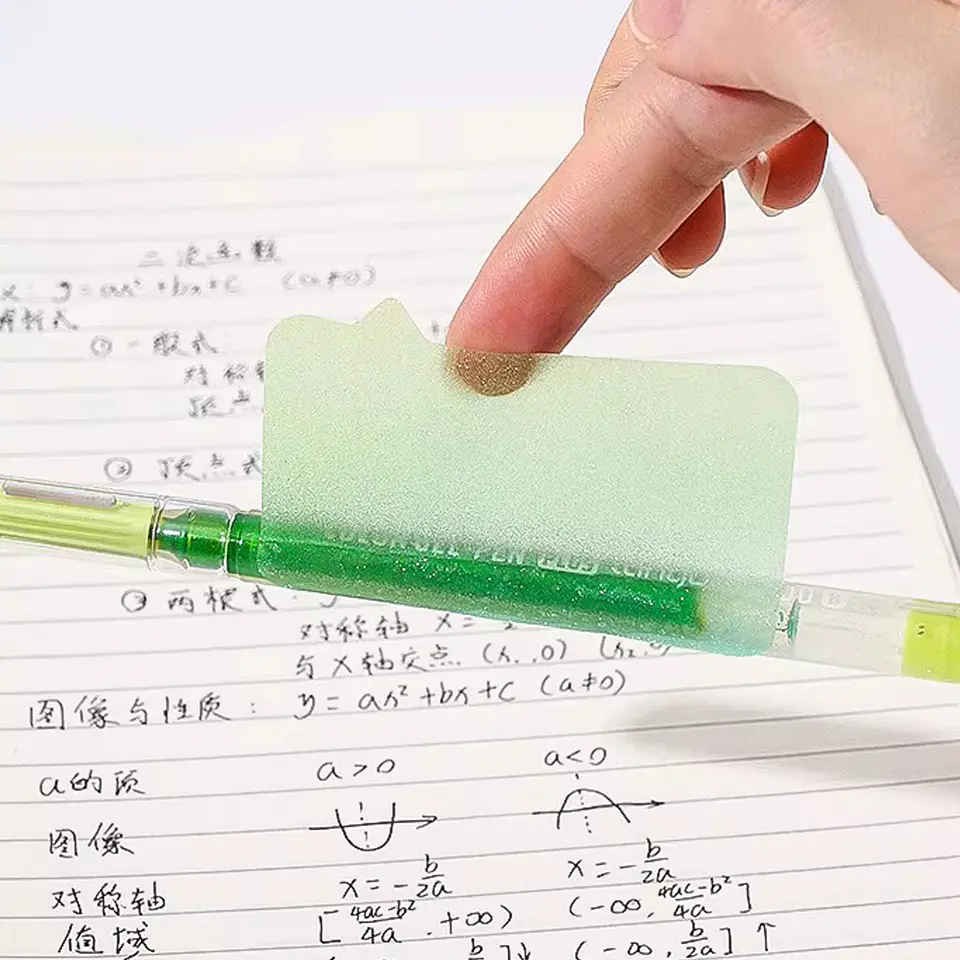 二次函数
y=ax²+bx+c (a≠0)
解析式
① 一般式
对称
顶点
② 顶点式
③ 两根式: y
对称轴 x=
与X轴交点 (x, ,0) (x₂,0)
图像与性质: y=ax²+bx+c (a≠0)
a的质 a>0 a<0
图像
对称轴 x=-b/2a x=-b/2a
值域 [4ac-b²/4a, +∞) (-∞, 4ac-b²/4a]
b ]↓ (-∞, b/2a]↑